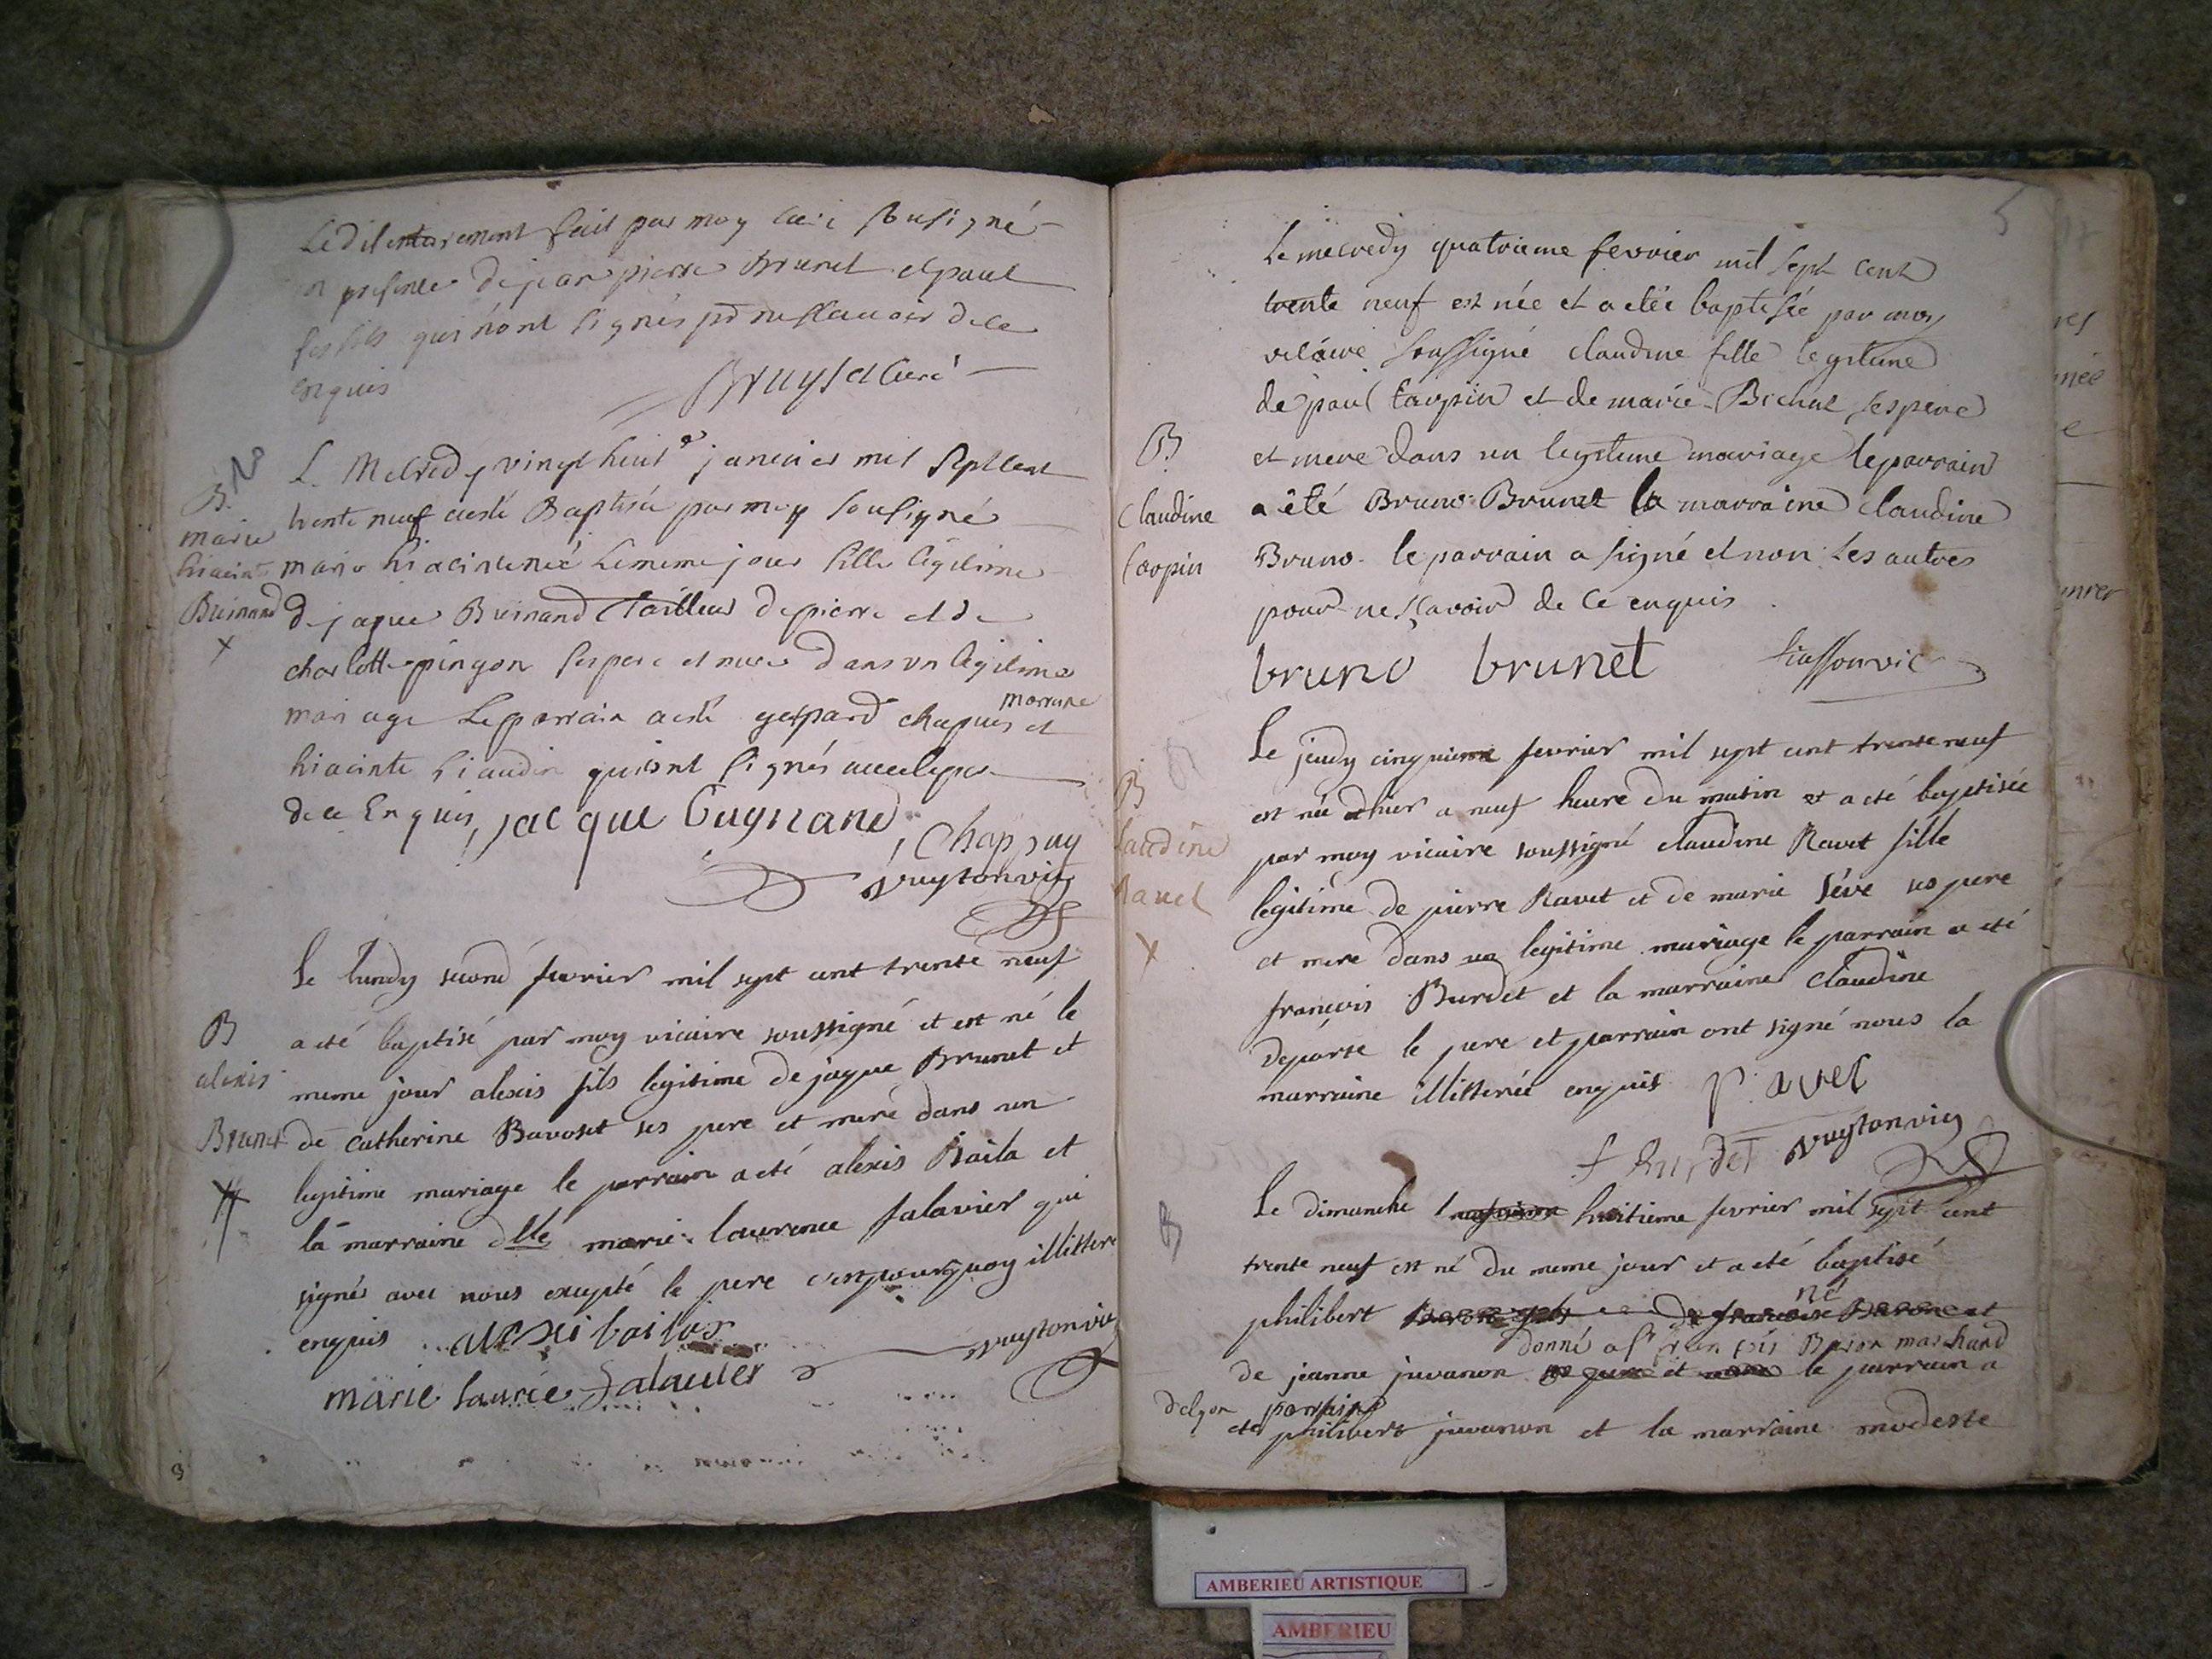 Ledit enterement fait par moy curé sousigné
en presence de jean pierre Brunet et paul
ses fils qui n'ont signés pr ne sscauoir de ce
enquis
Bruyset curé
B. N
marie
hiacinte
Buinand
L. Mecredy vingt huit janvier mil sept cent
trente neuf a esté Baptisée par moy sousigné
marie hiacinte née le meme jour fille légitime
de jaque Buinand tailleur de pierre et de
charlotte pingon ses pere et mere dans un légitime
mariage Le parrain a esté gaspard chapuis et marrine
hiacinte qui ont signés avec le pere
de ce Enquis jacque Bugnand
Chappuy
Vuyton vic
Le lundy second fevrier mil sept cent trente neuf
B
alexis
Brunet
a eté baptisé par moy vicaire soussigné et est né le
meme jour alexis fils legitime de jaque Brunet et
de catherine Bavoset ses pere et mere dans un
legitime mariage le parrain a eté alexis Baila et
la marraine dlle marie laurence salavier qui
signés avec nous excepté le pere illitteré
enquis
marie laurée Salauier
Vuyton vic
5
Le mecredy quatrieme fevrier mil sept cent
trente neuf est née et a etée baptisée par moy
vicaire soussigné claudine fille legitime
de paul taupin et de marie Bichat ses pere
B
Claudine
et mere dans un legitime mariage le parrain
a été Bruno Brunet la marraine claudine
Bruno. le parrain a signé et non les autres
pour ne sçavoir de ce enquis
bruno brunet
Le jeudy cinquieme fevrier mil sept cent trente neuf
B
laudine
Ravet
est née d'hier a neuf heure du matin et a eté baptisée
par moy vicaire soussigné claudine Ravet fille
legitime de pierre Ravet et de marie séve ses pere
et mere dans un legitime mariage le parrain a eté
françois Burdet et la marraine claudine
deparse le pere et parrain ont signé nous la
marraine illitterée enquis P. avet
f Burdet Vuyton vic
B
Le dimanche huitieme fevrier mil sept cent
trente neuf est né du meme jour et a eté baptisé
philibert né
donné a françois Baron marchand
de jeanne juvanon et le parrain a
parrain
eté philibert juvanon et la marraine modeste
AMBERIEU ARTISTIQUE
AMBERIEU